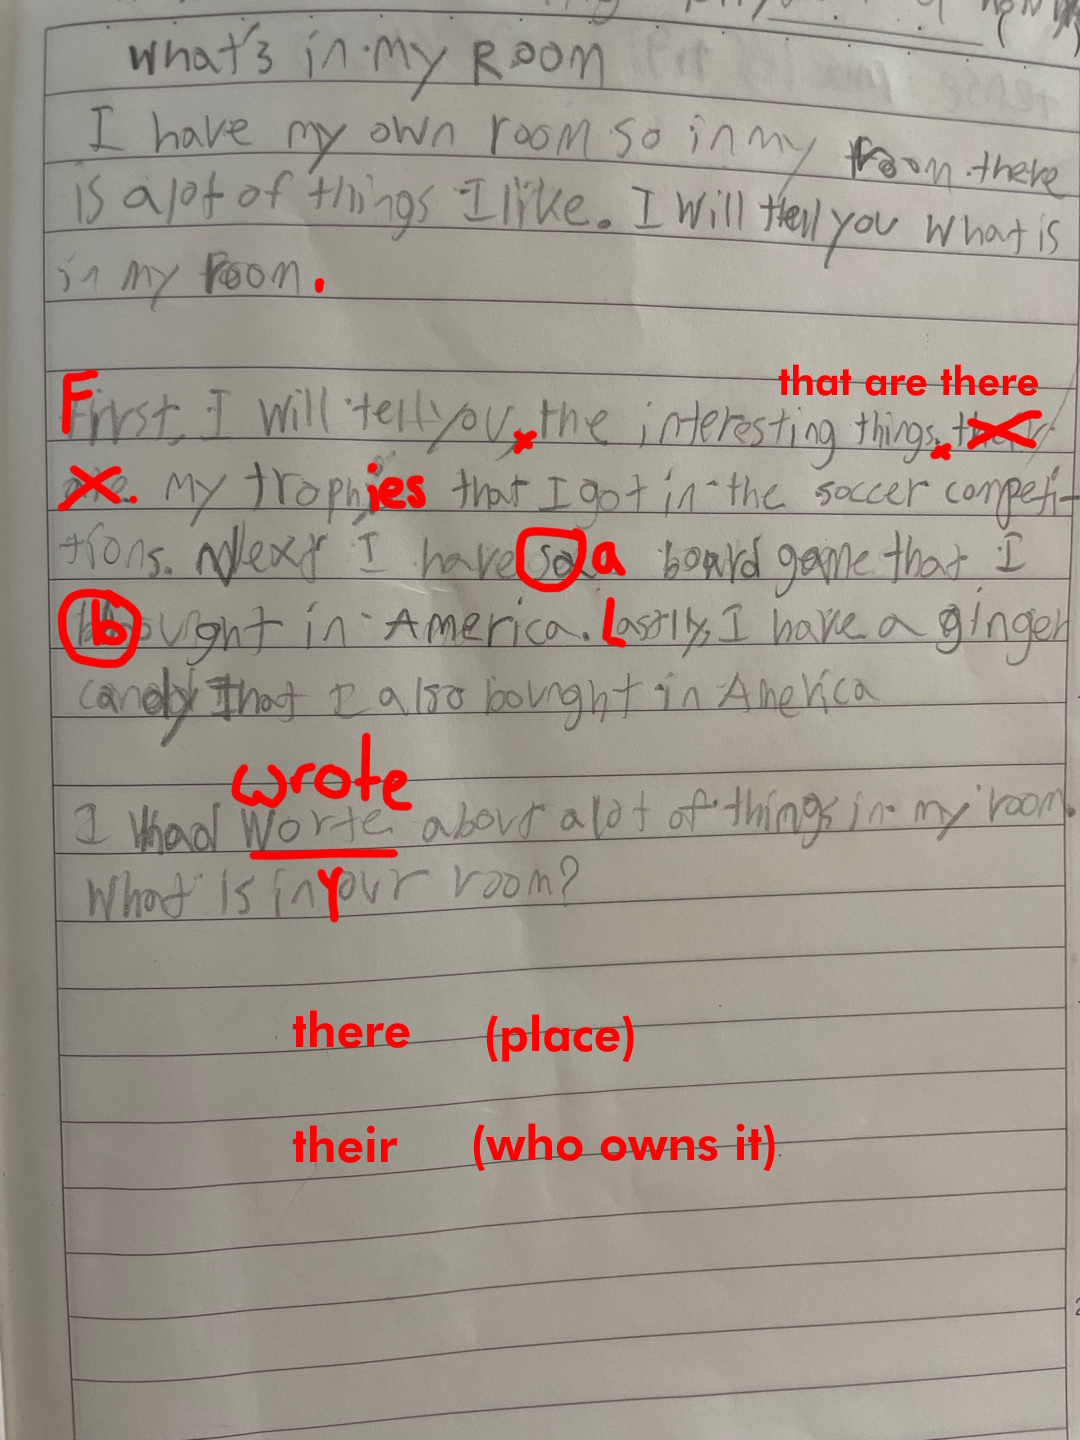 What's in my Room
I have my own room so in my room there
is a lot of things I like. I Will tell you what is
in my Room.
that are there
First, I will tell you, the interesting things.
My trophies that I got in the soccer competi-
tions. Next I have so a board game that I
bought in America. Lastly, I have a ginger
candy that I also bought in America
wrote
I had Worte about a lot of things in my room.
What is in Your room?
there (place)
their (who owns it)